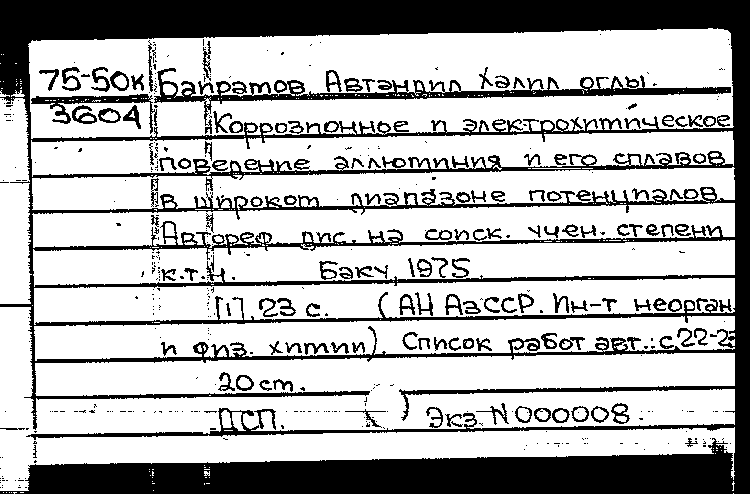 75-50к Байратов Автандил Халил оглы.
3604 Коррозионное и электрохимическое
поведение аллюминия и его сплавов
в широком диапазоне потенциалов.
Автореф. дис. на соиск. учен. степени
к.т.н. Баку, 1975.
[1], 23 с. (АН АзССР. Ин-т неорган.
и физ. химии). Список работ авт.: с.22-23
20 см.
ДСП. Экз. N 000008.